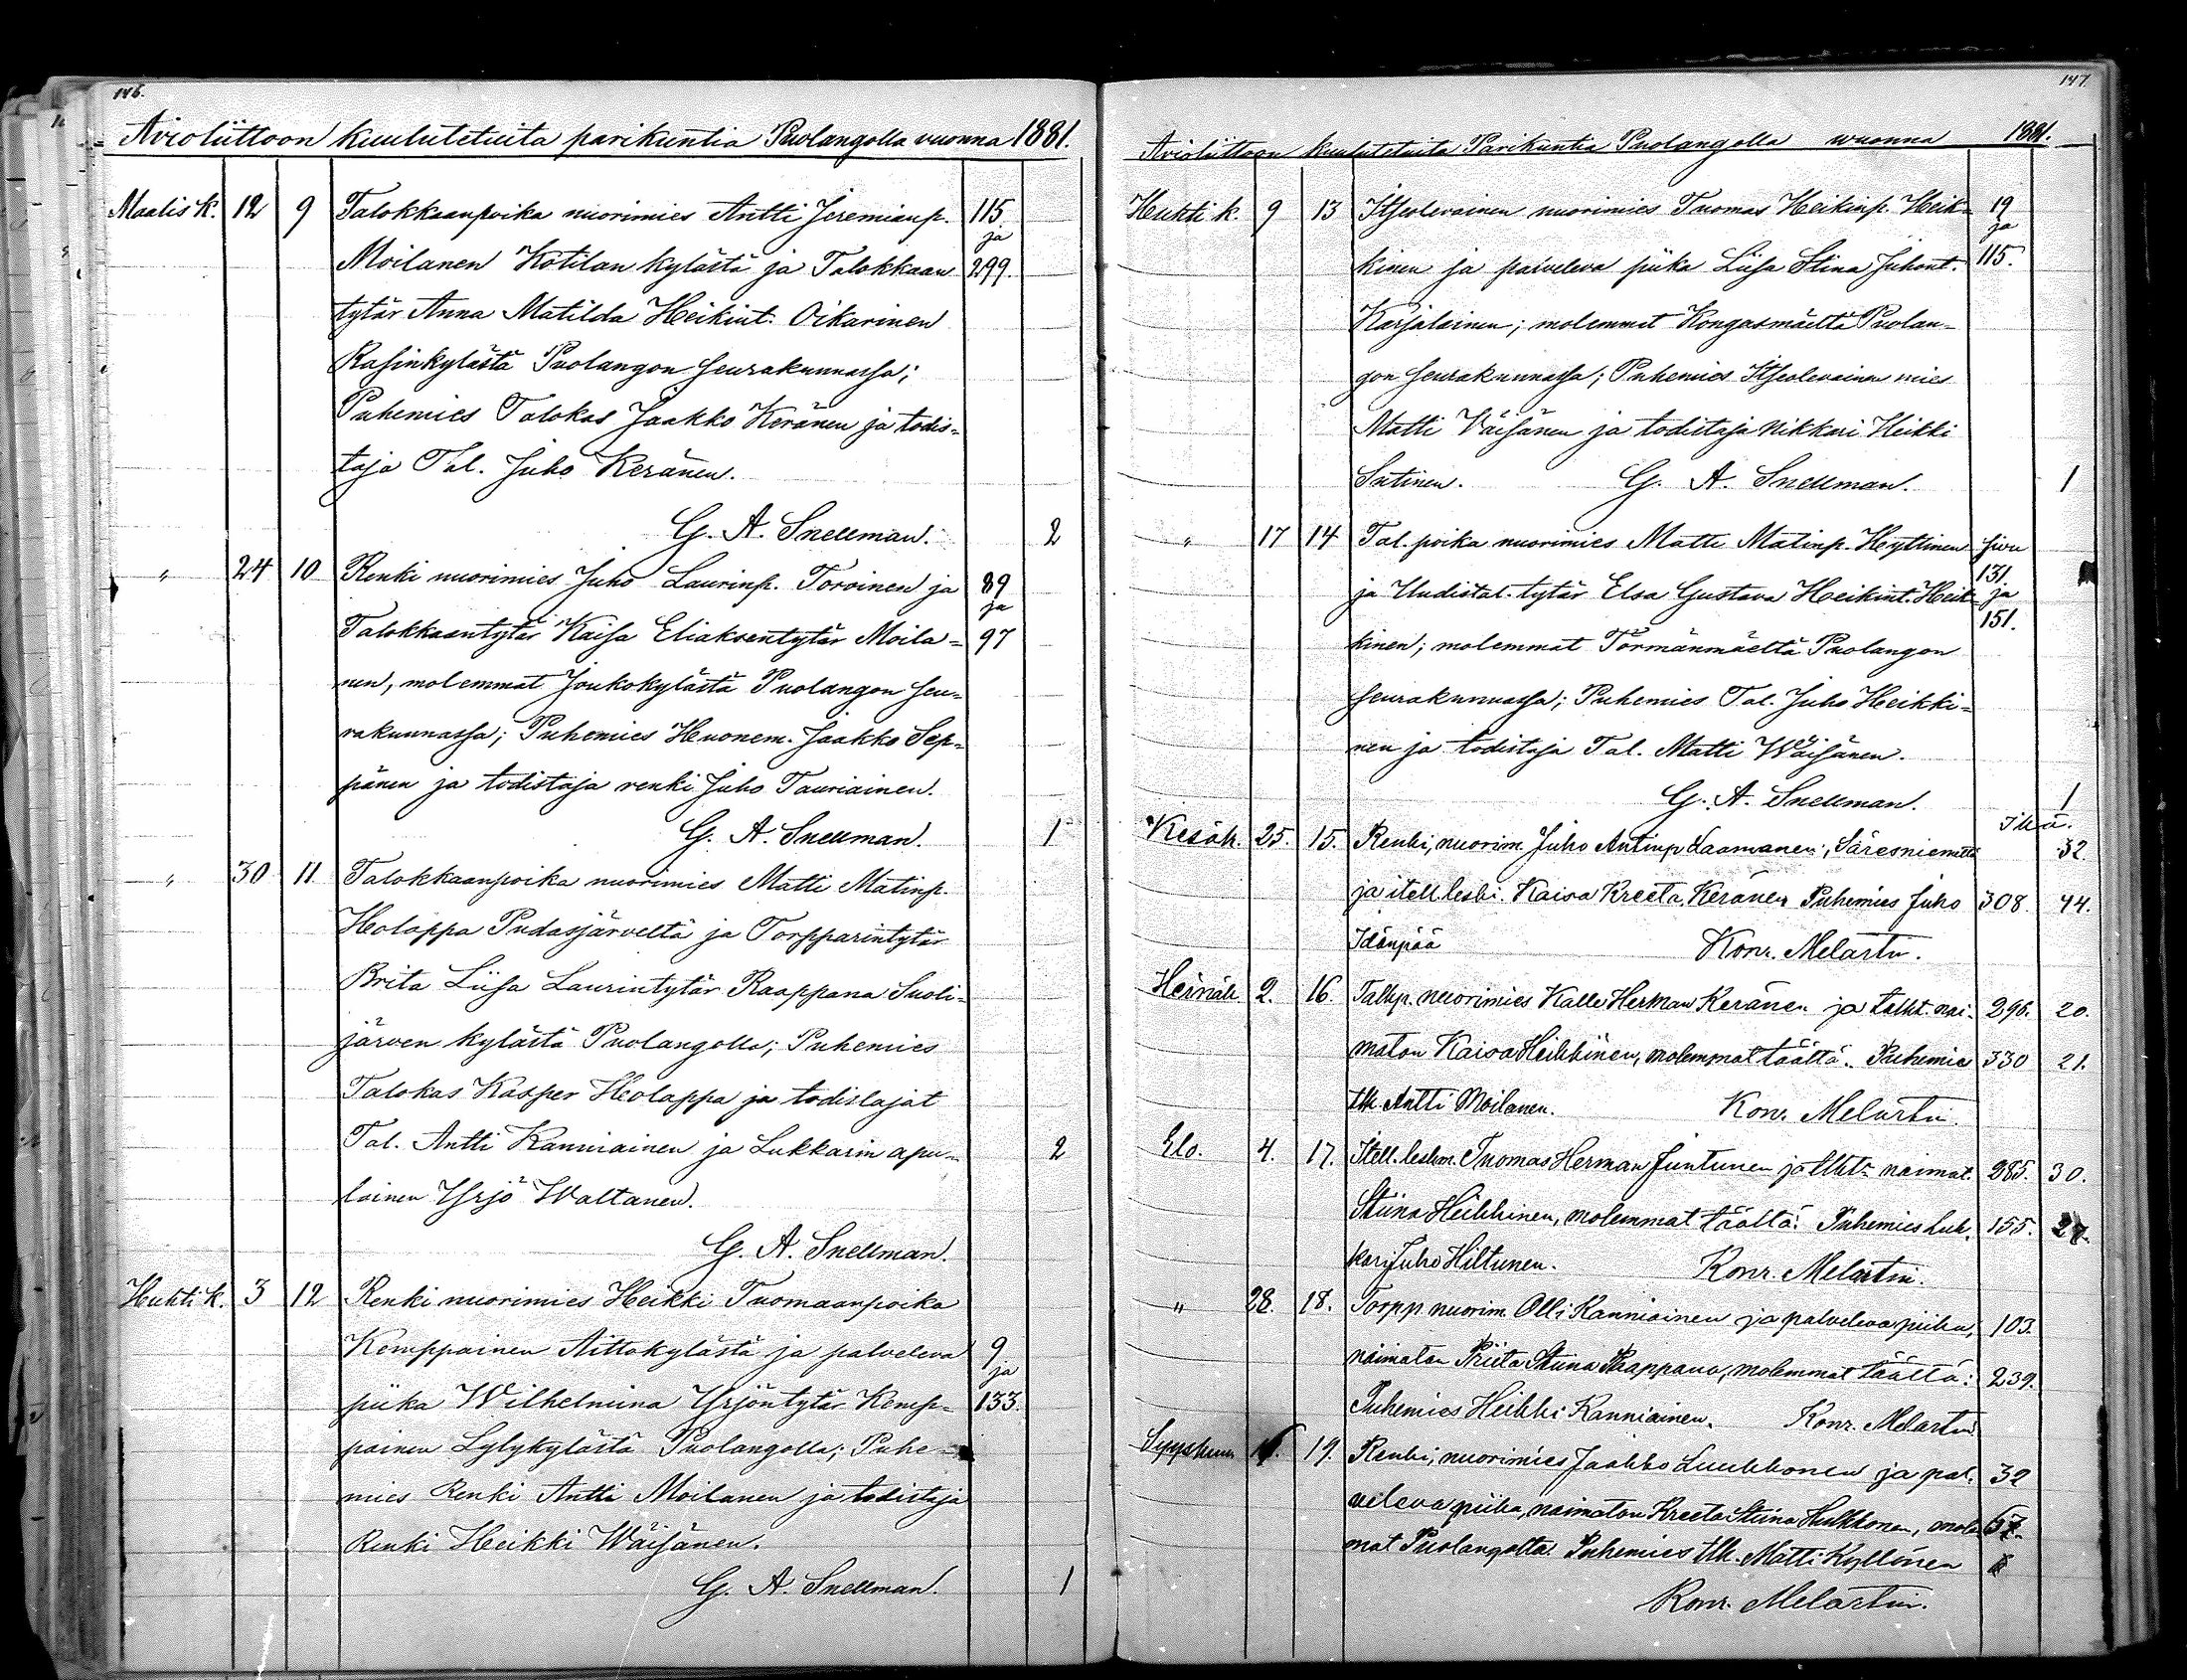 146.
Avioliittoon kuulutetuita parikuntia Puolangolla vuonna 1881.
Maalis k. 12 9 Talokkaanpoika nuorimies Antti Jeremianp. 115
ja
Moilanen Kotilan kylästä ja Talokkaan 299.
tytär Anna Matilda Heikint. Oikarinen
Rasinkylästä Puolangon seurakunnassa;
Puhemies Talokas Jaakko Keränen ja todis=
taja Tal. Juho Keränen.
G. A. Snellman. 2
" 24 10 Renki nuorimies Juho Laurinp. Toroinen ja 89
ja
Talokkaantytär Kaisa Eliaksentytär Moila= 97
nen, molemmat Joukokylästä Puolangon seu=
rakunnassa; Puhemies Huonem. Jaakko Sep=
pänen ja todistaja renki Juho Tauriainen.
G. A. Snellman. 1
" 30 11. Talokkaanpoika nuorimies Matti Matinp.
Holappa Pudasjärveltä ja Torpparintytär
Brita Liisa Laurintytär Raappana Suoli=
järven kylästä Puolangolla; Puhemies
Talokas Kasper Holappa ja todistajat
Tal. Antti Kanniainen ja Lukkarin apu= 2
lainen Yrjö Waltanen.
G. A. Snellman.
Huhti k. 3 12 Renki nuorimies Heikki Tuomaanpoika
Kemppainen Aittokylästä ja palveleva 9
ja
piika Wilhelmina Yrjöntytär Kemp= 133.
painen Lylykylästä Puolangolla; Puhe=
mies Renki Antti Moilanen ja todistaja
Renki Heikki Wäisänen.
G. A. Snellman. 1
147
Avioliittoon kuulutetuita Parikuntia Puolangolla wuonna 1881.
Huhti k. 9 13 Itsolevainen nuorimies Tuomas Heikinp. Heik= 19
ja
kinen ja palveleva piika Liisa Stina Juhont. 115.
Karjalainen; molemmat Kongasmäeltä Puolan=
gon seurakunnassa; Puhemies Itsolevainen mies
Matti Väisänen ja todistaja Nikkari Heikki
Sutinen. G. A. Snellman. 1
" 17 14 Tal. poika nuorimies Matti Matinp. Hyttinen sivu
131.
ja Uudistal. tytär Elsa Gustava Heikint. Heik= ja
151.
kinen; molemmat Törmänmäeltä Puolangon
seurakunnassa; Puhemies Tal. Juho Heikki=
nen ja todistaja Tal. Matti Wäisänen.
G. A. Snellman. 1
Ikä.
Kesäk. 25. 15. Renki, nuorim. Juho Antinp Laamanen, Säresniemeltä 32.
ja itell. leski. Kaisa Kreeta Keränen Puhemies Juho 308. 44.
Idänpää Konr. Melartin.
Heinäk. 2. 16. Talkp. nuorimies Kalle Herman Keränen ja talkt. nai= 296. 20.
maton Kaisa Heikkinen, molemmat täältä. Puhemies 330 21.
tlk. Antti Moilanen. Konr. Melartin.
Elo. 4. 17. Itell. leskm. Tuomas Herman Juntunen ja tlkt. naimat. 285. 30.
Stiina Heikkinen, molemmat täältä. Puhemies Luk= 155. 27.
kari Juho Hiltunen. Konr. Melartin.
" 28. 18. Torpp. nuorim. Olli Kanniainen ja palveleva piika, 103.
naimaton Priita Stiina Raappana, molemmat täältä: 239.
Puhemies Heikki Kanniainen. Konr. Melartin
Syyskuun 19. Renki, nuorimies Jaakko Luukkonen ja pal= 32
veleva piika, naimaton Kreeta Stiina Hulkkonen, molem= 67.
mat Puolangolta. Puhemies tlk. Matti Kyllönen
Konr. Melartin.